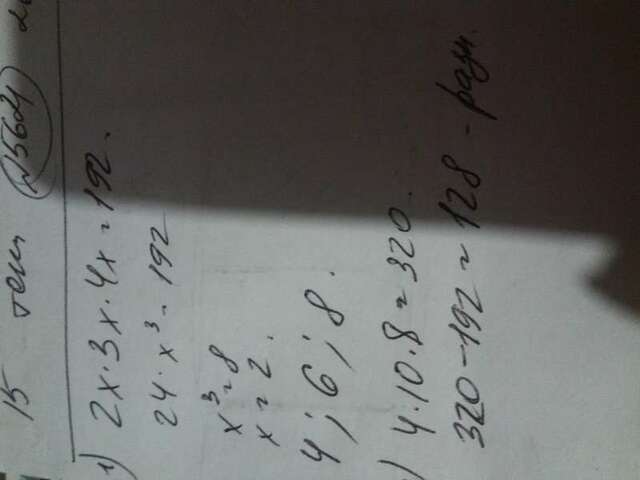 15
1) 2x·3x·4x=192.
24·x³=192
x³=8
x=2.
4; 6; 8.
) 4·10·8=320.
320-192=128 - разн.